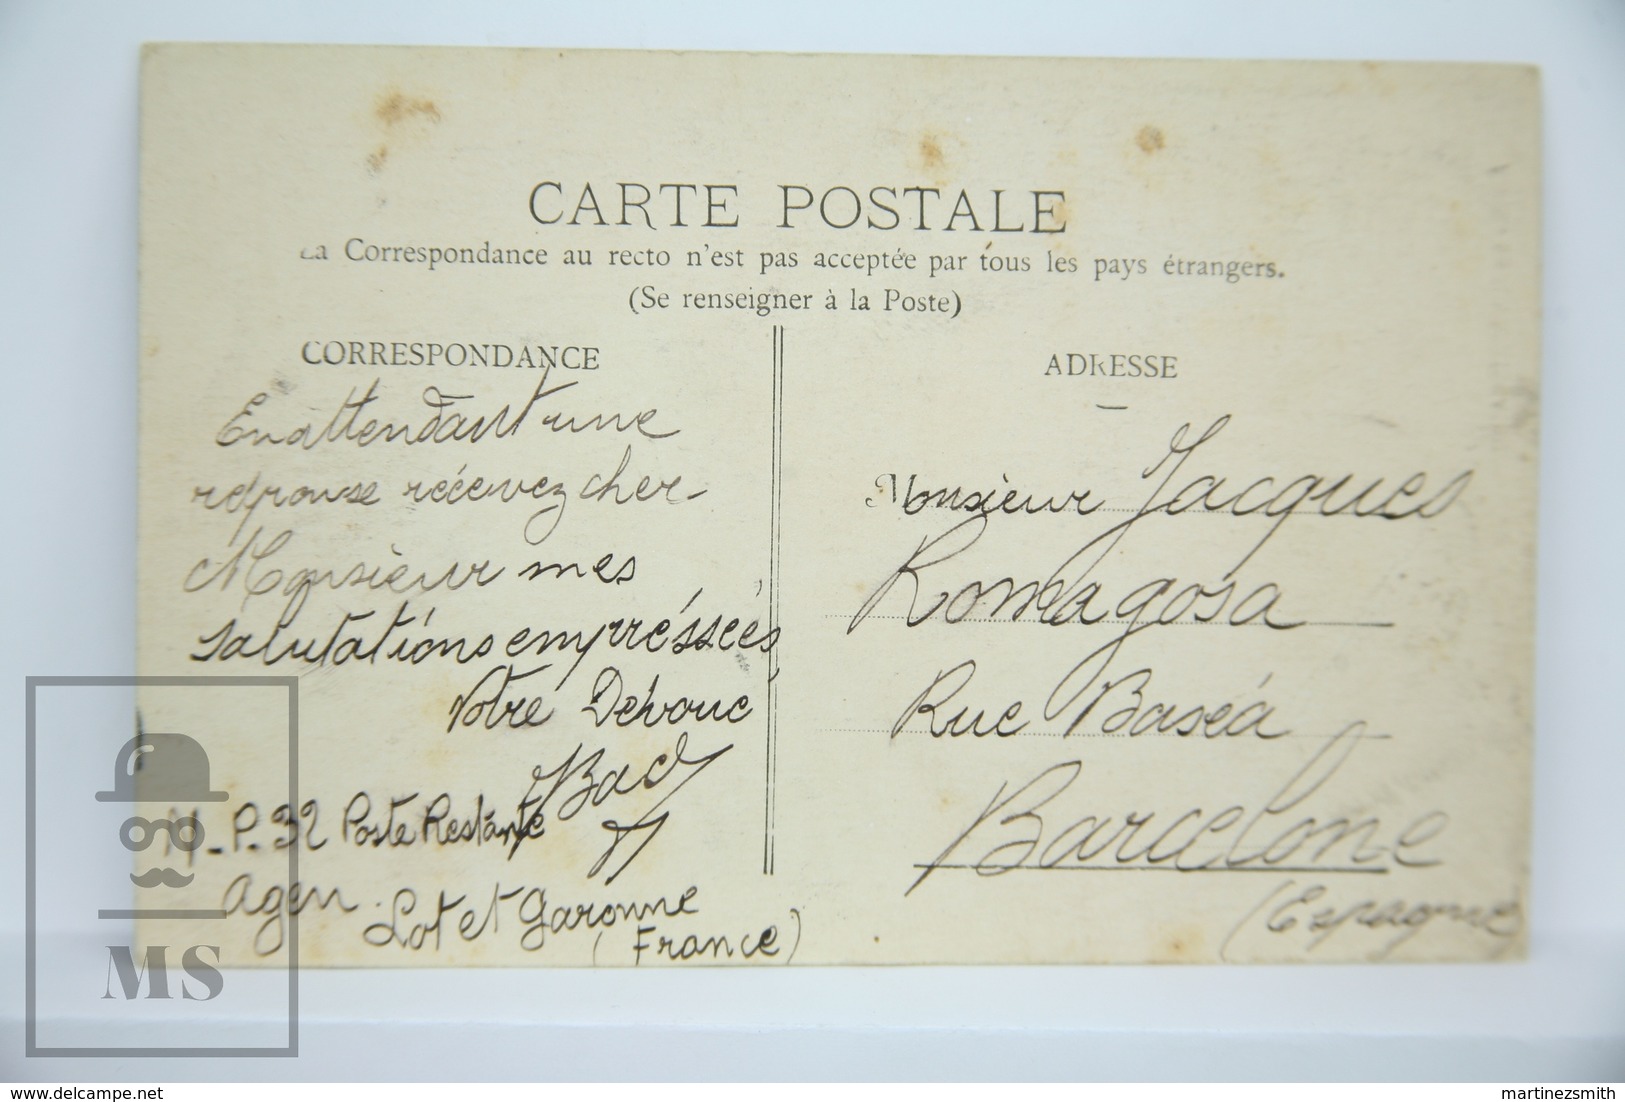 CARTE POSTALE
La Correspondance au recto n'est pas acceptée par tous les pays étrangers.
(Se renseigner à la Poste)
CORRESPONDANCE
En attendant une
reponse récevez cher
Monsieur mes
salutations empréssées
Votre Dévoué
M-P. 32 Poste Restante
Agen. Lot et Garonne
(France)
ADRESSE
Monsieur Jacques
Romagosa
Rue Baséa
Barcelone
(Espagne)
MS
delcampe.net
martinezsmith